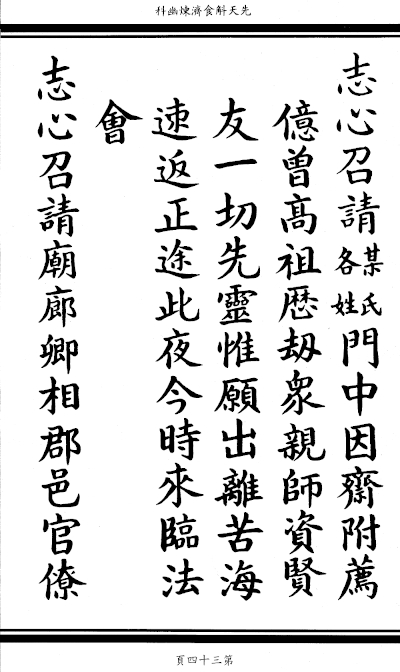 先天斛食濟煉幽科
志心召請某氏各姓門中因齋附薦
億曾高祖歷劫眾親師資賢
友一切先靈惟願出離苦海
速返正途此夜今時來臨法
會
志心召請廟廊卿相郡邑官僚
第三十四頁